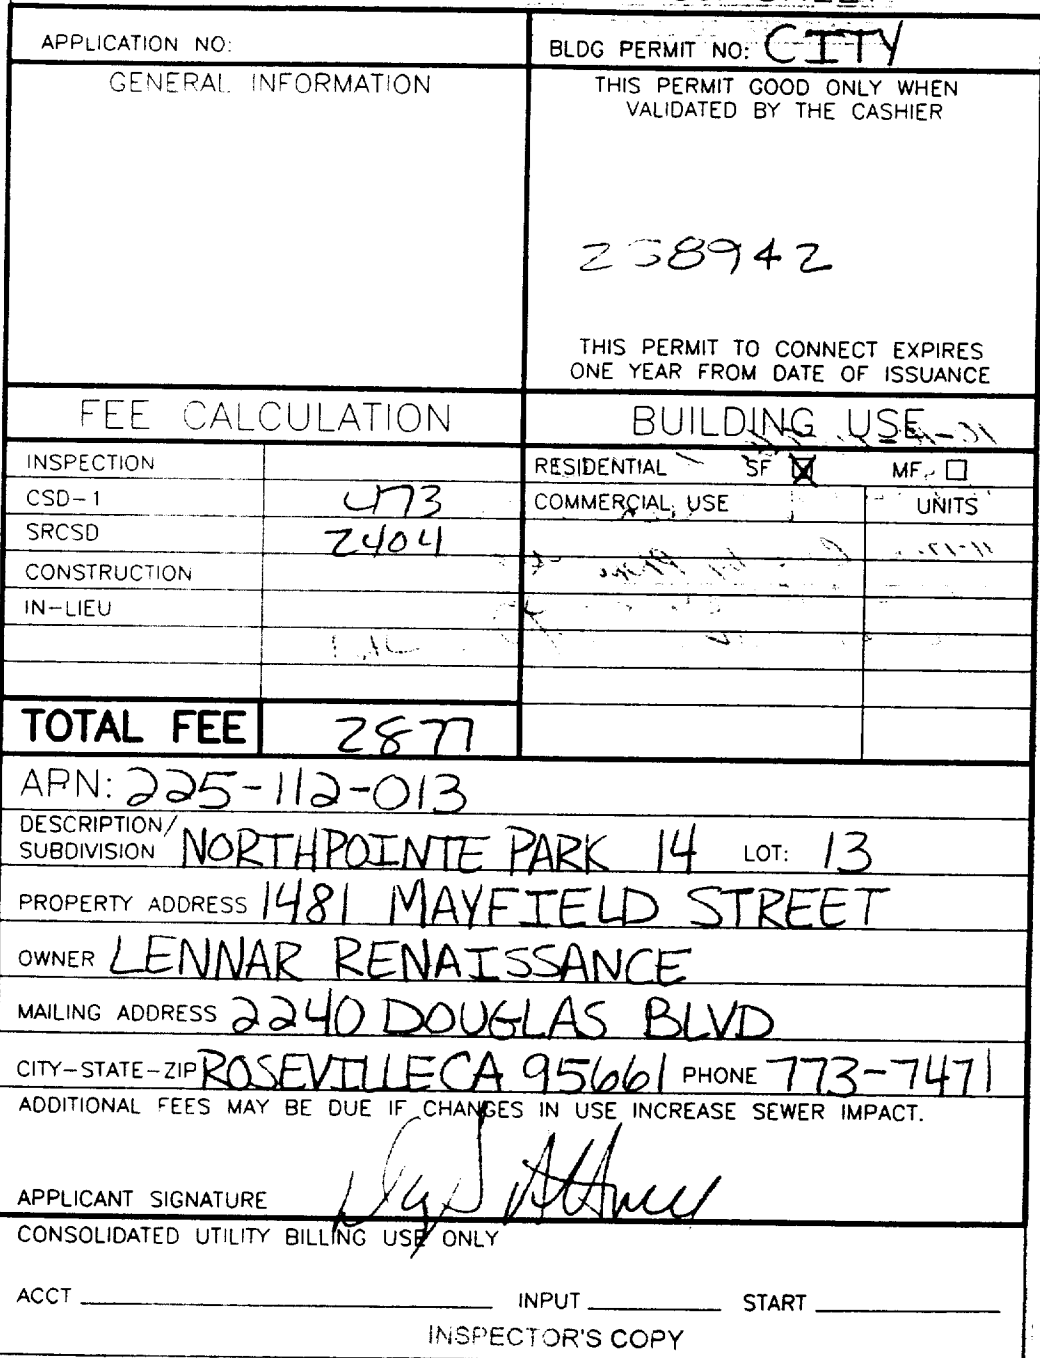 APPLICATION NO:
BLDG PERMIT NO: CITY
GENERAL INFORMATION
THIS PERMIT GOOD ONLY WHEN
VALIDATED BY THE CASHIER
258942
THIS PERMIT TO CONNECT EXPIRES
ONE YEAR FROM DATE OF ISSUANCE
FEE CALCULATION
BUILDING USE
INSPECTION
RESIDENTIAL SF ☒ MF ☐
CSD-1 473
COMMERCIAL USE UNITS
SRCSD 2404
CONSTRUCTION
IN-LIEU
TOTAL FEE 2877
APN: 225-112-013
DESCRIPTION/
SUBDIVISION NORTHPOINTE PARK 14 LOT: 13
PROPERTY ADDRESS 1481 MAYFIELD STREET
OWNER LENNAR RENAISSANCE
MAILING ADDRESS 2240 DOUGLAS BLVD
CITY-STATE-ZIP ROSEVILLE CA 95661 PHONE 773-7471
ADDITIONAL FEES MAY BE DUE IF CHANGES IN USE INCREASE SEWER IMPACT.
APPLICANT SIGNATURE
CONSOLIDATED UTILITY BILLING USE ONLY
ACCT INPUT START
INSPECTOR'S COPY